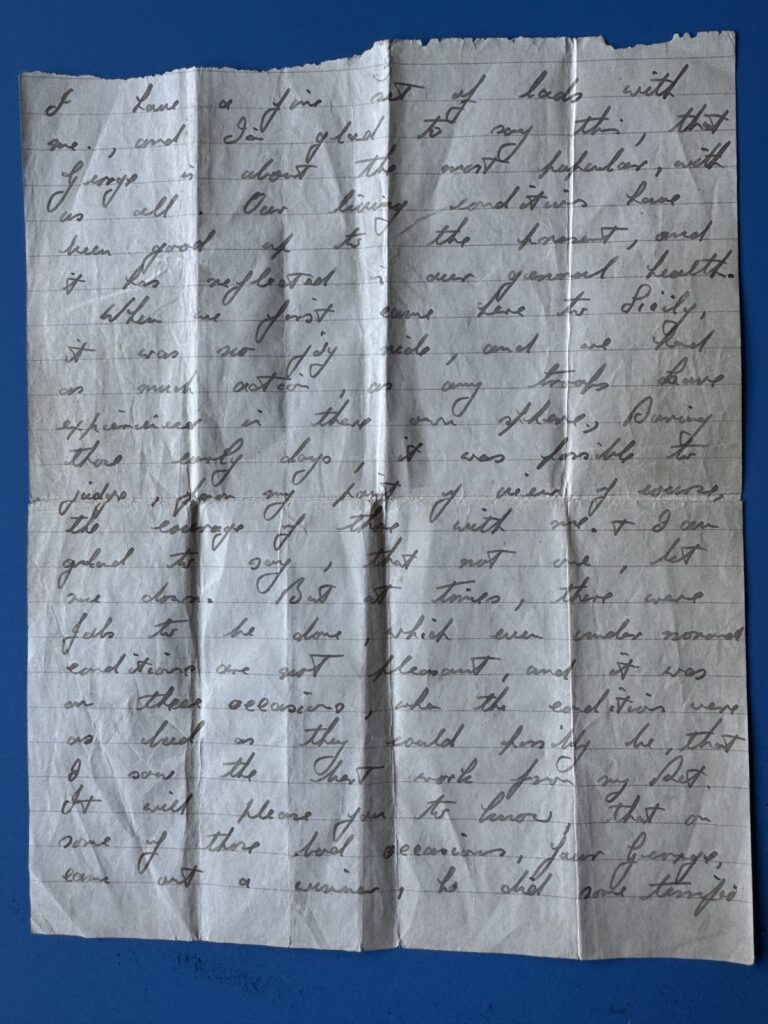 I have a fine set of lads with
me., and I'm glad to say this, that
George is about the most popular, with
us all. Our living conditions have
been good up to the present, and
it has reflected in our general health.
When we first came here to Sicily,
it was no joy ride, and we had
as much action, as any troops have
experienced in there own sphere, During
those early days, it was possible to
judge, from my point of view of course,
the courage of those with me. & I am
glad to say, that not one, let
me down. But at times, there were
Jobs to be done, which even under normal
conditions are not pleasant, and it was
on these occasions, when the conditions were
as bad as they could possibly be, that
I saw the best work from my Det.
It will please you to know, that on
some of those bad occasions, your George,
came out a winner, he did some terrific